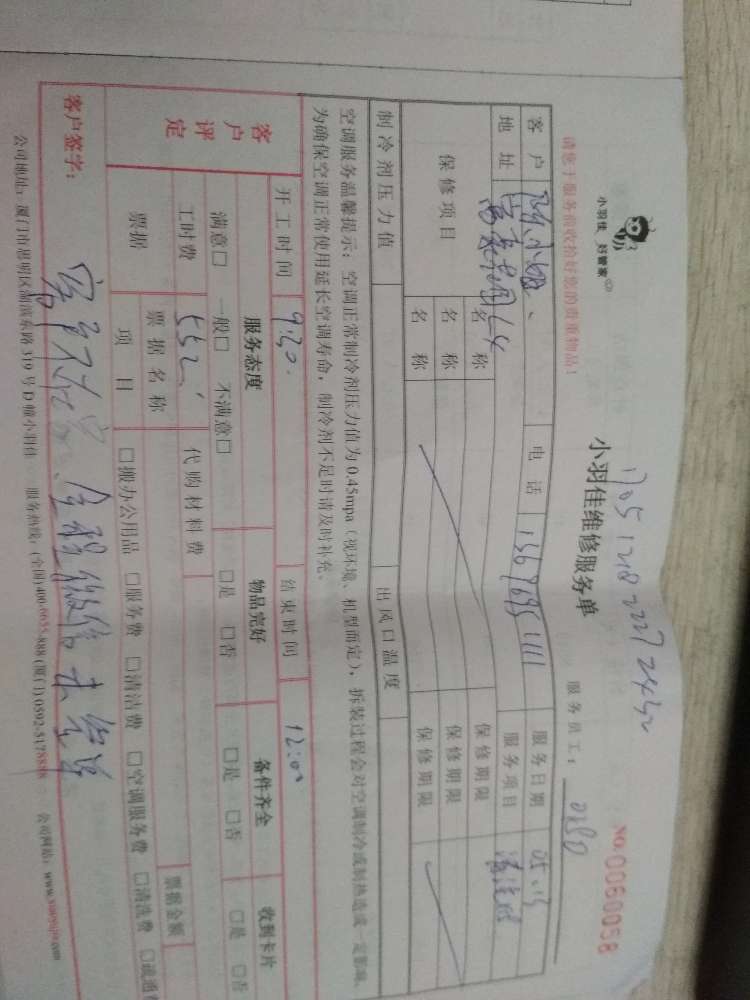 小羽佳 好管家
请您于服务前收拾好您的贵重物品!
小羽佳维修服务单
服务员工: 0180
NO.0060058
客户 陈小姐 电话 服务日期 05.13
地址 服务项目
保修项目 名称 保修期限
名称 保修期限
名称 保修期限
制冷剂压力值 出风口温度
空调服务温馨提示: 空调正常制冷剂压力值为0.45mpa (视环境、机型而定), 拆装过程会对空调制冷或制热造成一定影响,
为确保空调正常使用延长空调寿命, 制冷剂不足时请及时补充。
客户评定
开工时间 9:20 结束时间 12:00
服务态度 物品完好 备件齐全 收到卡片
满意□ 一般□ 不满意□ □是 □否 □是 □否 □是 □否
工时费 552 代购材料费
票据 票据名称 票据金额
项目 □搬办公用品 □服务费 □清洁费 □空调服务费 □清洗费 □疏通
客户签字: 微信
公司地址: 厦门市思明区湖滨东路319号D幢小羽佳 服务热线: (全国)400-6655-888 (厦门)0592-5178888 公司网站: